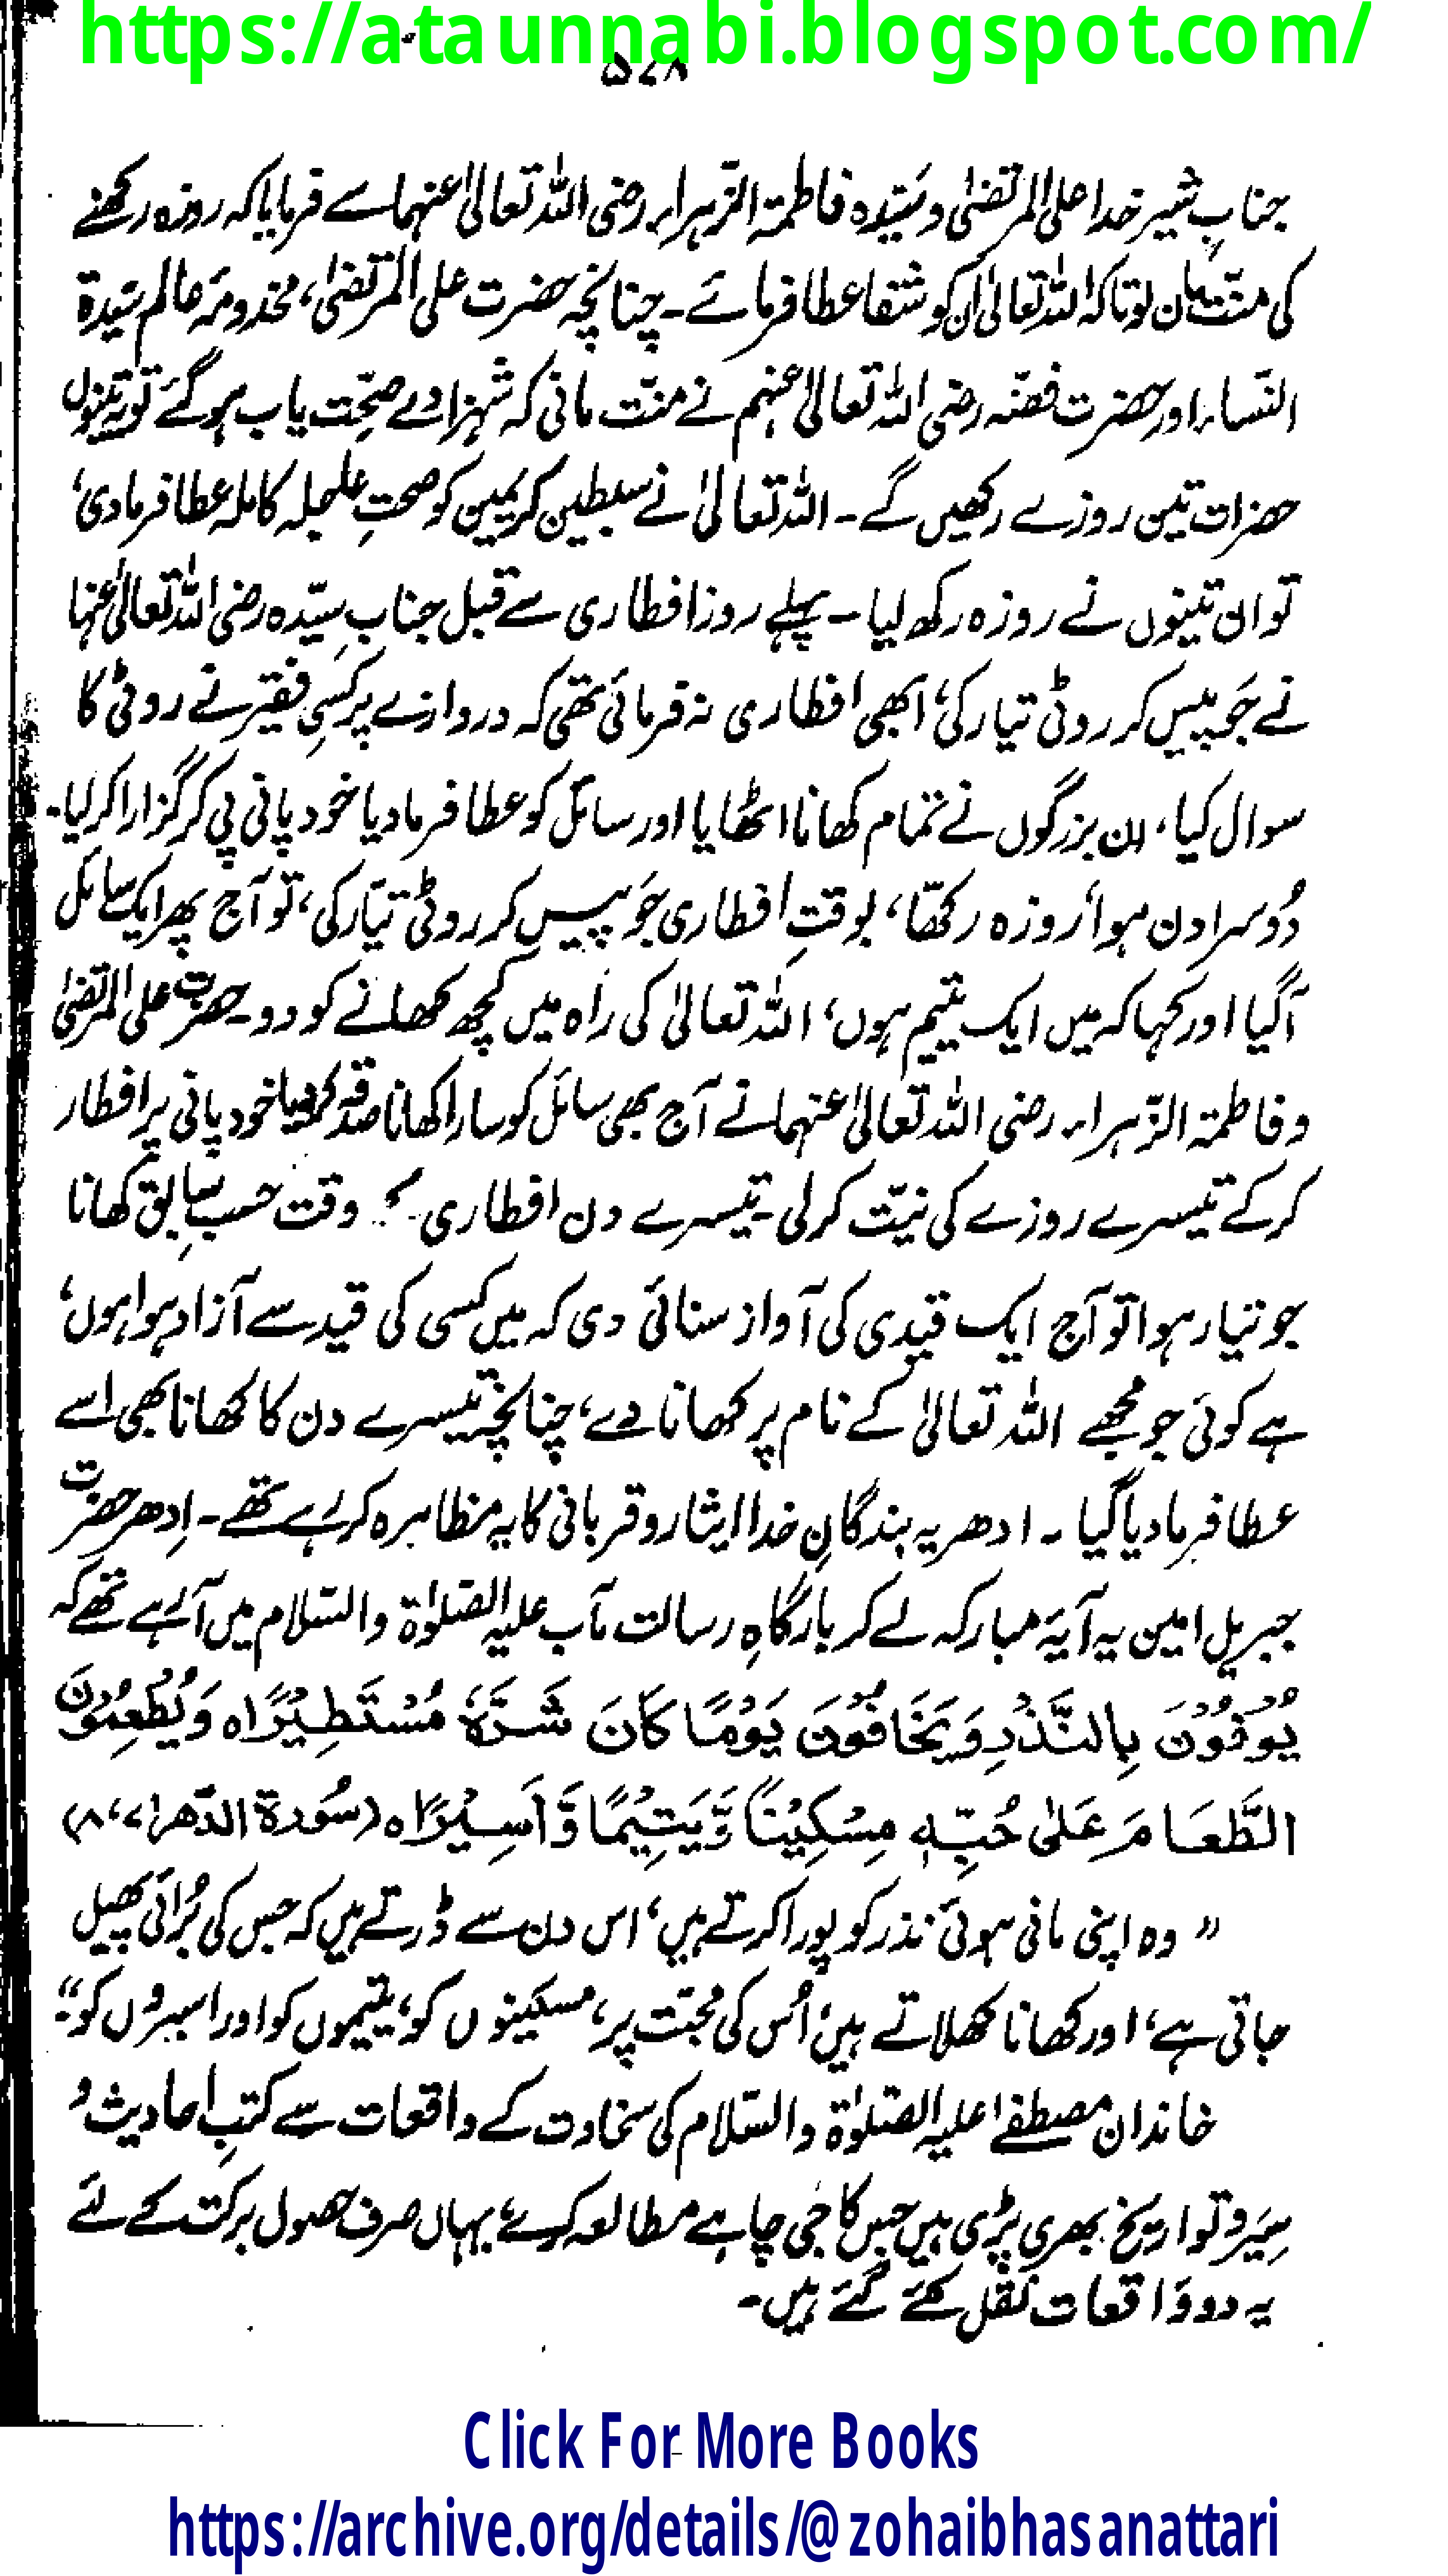 https://ataunnabi.blogspot.com/
۵۷۸
جنابِ شیرِ خدا علی المرتضیٰ و سیّدہ فاطمۃ الزّہراء رضی اللہ تعالیٰ عنہما سے فرمایا کہ روزہ رکھنے
کی منّت مان لو تاکہ اللہ تعالیٰ ان کو شفا عطا فرمائے۔ چنانچہ حضرت علی المرتضیٰ، مخدومۂ عالم سیّدۃ
النّساء اور حضرت فضّہ رضی اللہ تعالیٰ عنہم نے منّت مانی کہ شہزادے صحّت یاب ہو گئے تو یہ تینوں
حضرات تین روزے رکھیں گے۔ اللہ تعالیٰ نے سبطین کریمین کو صحتِ عاجلہ کاملہ عطا فرما دی،
تو ان تینوں نے روزہ رکھ لیا۔ پہلے روز افطاری سے قبل جنابِ سیّدہ رضی اللہ تعالیٰ عنہا
نے جَو پیس کر روٹی تیار کی، ابھی افطاری نہ فرمائی تھی کہ دروازے پر کسی فقیر نے روٹی کا
سوال کیا، ان بزرگوں نے تمام کھانا اٹھایا اور سائل کو عطا فرما دیا خود پانی پی کر گزارا کر لیا۔
دُوسرا دن ہوا، روزہ رکھّا، بوقتِ افطاری جَو پیس کر روٹی تیّار کی، تو آج پھر ایک سائل
آگیا اور کہا کہ میں ایک یتیم ہوں، اللہ تعالیٰ کی راہ میں کچھ کھانے کو دو۔ حضرت علی المرتضیٰ
و فاطمۃ الزّہراء رضی اللہ تعالیٰ عنہما نے آج بھی سائل کو سارا کھانا صدقہ کر دیا خود پانی پر افطار
کر کے تیسرے روزے کی نیّت کر لی۔ تیسرے دن افطاری کے وقت حسبِ سابق کھانا
جو تیار ہوا تو آج ایک قیدی کی آواز سنائی دی کہ میں کسی کی قید سے آزاد ہوا ہوں،
ہے کوئی جو مجھے اللہ تعالیٰ کے نام پر کھانا دے، چنانچہ تیسرے دن کا کھانا بھی اسے
عطا فرما دیا گیا۔ ادھر یہ بندگانِ خدا ایثار و قربانی کا یہ مظاہرہ کر رہے تھے۔ اِدھر حضرت
جبریل امین یہ آیۂ مبارکہ لے کر بارگاہِ رسالت مآب علیہ الصّلوٰۃ والسّلام میں آ رہے تھے کہ
یُوْفُوْنَ بِالنَّذْرِ وَیَخَافُوْنَ یَوْمًا کَانَ شَرُّہٗ مُسْتَطِیْرًاہ وَیُطْعِمُوْنَ
الطَّعَامَ عَلٰی حُبِّہٖ مِسْکِیْنًا وَّیَتِیْمًا وَّاَسِیْرًاہ (سُورۃ الدّھر ۷، ۸)
” وہ اپنی مانی ہوئی نذر کو پورا کرتے ہیں، اس دن سے ڈرتے ہیں کہ جس کی بُرائی پھیل
جاتی ہے، اور کھانا کھلاتے ہیں، اُس کی محبّت پر، مسکینوں کو، یتیموں کو اور اسیروں کو۔“
خاندان مصطفےٰ علیہ الصّلوٰۃ والسّلام کی سخاوت کے واقعات سے کتبِ احادیث و
سِیَر و تواریخ بھری پڑی ہیں جس کا جی چاہے مطالعہ کرے، یہاں صرف حصولِ برکت کے لئے
یہ دو واقعات نقل کئے گئے ہیں۔
Click For More Books
https://archive.org/details/@zohaibhasanattari